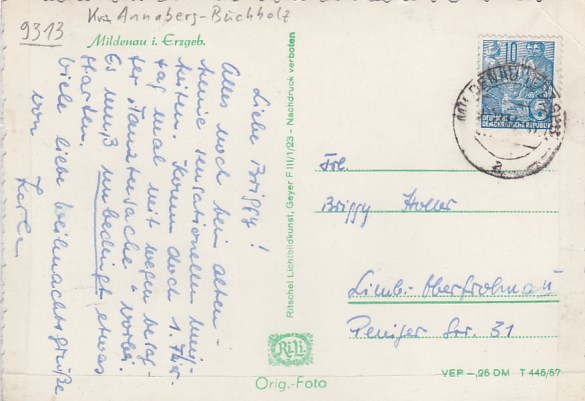 9313
Krs. Annaberg-Buchholz
Mildenau i. Erzgeb.
Liebe Briggy!
Alles noch beim alten -
keine sensationellen Neuig-
keiten. Komm doch 1. Feier-
tag mal mit wegen bewuß-
ter "Tanzsache" vorbei.
Es muß unbedingt etwas
starten.
Viele liebe Weihnachtsgrüße
von
Karli
Ritschel Lichtbildkunst, Geyer F III/1/23 - Nachdruck verboten
RiLi
Orig.-Foto
10
DEUTSCHE
DEMOKRATISCHE REPUBLIK
MILDENAU
a
Frl.
Briggy Holler
Limb.-Oberfrohna
Peniger Str. 31
VEP -,25 DM T 445/57